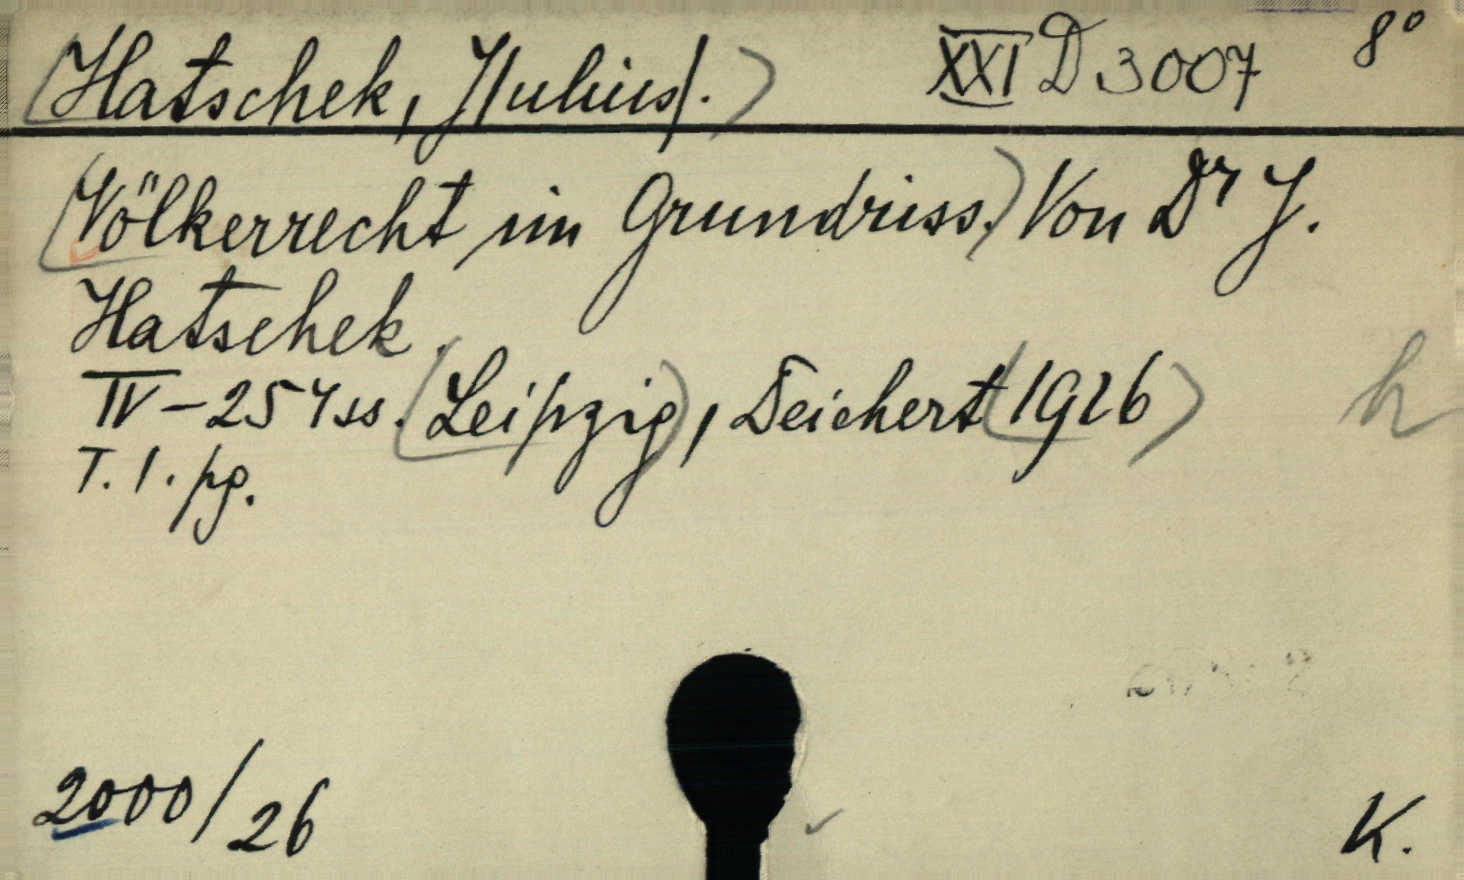 (Hatschek, J/ulius/.) XXI D 3007 8°
(Völkerrecht im Grundriss.) Von Dr J.
Hatschek.
IV-254ss. (Leipzig), Deichert (1926)
T. 1. pg.
h
2000/26
K.